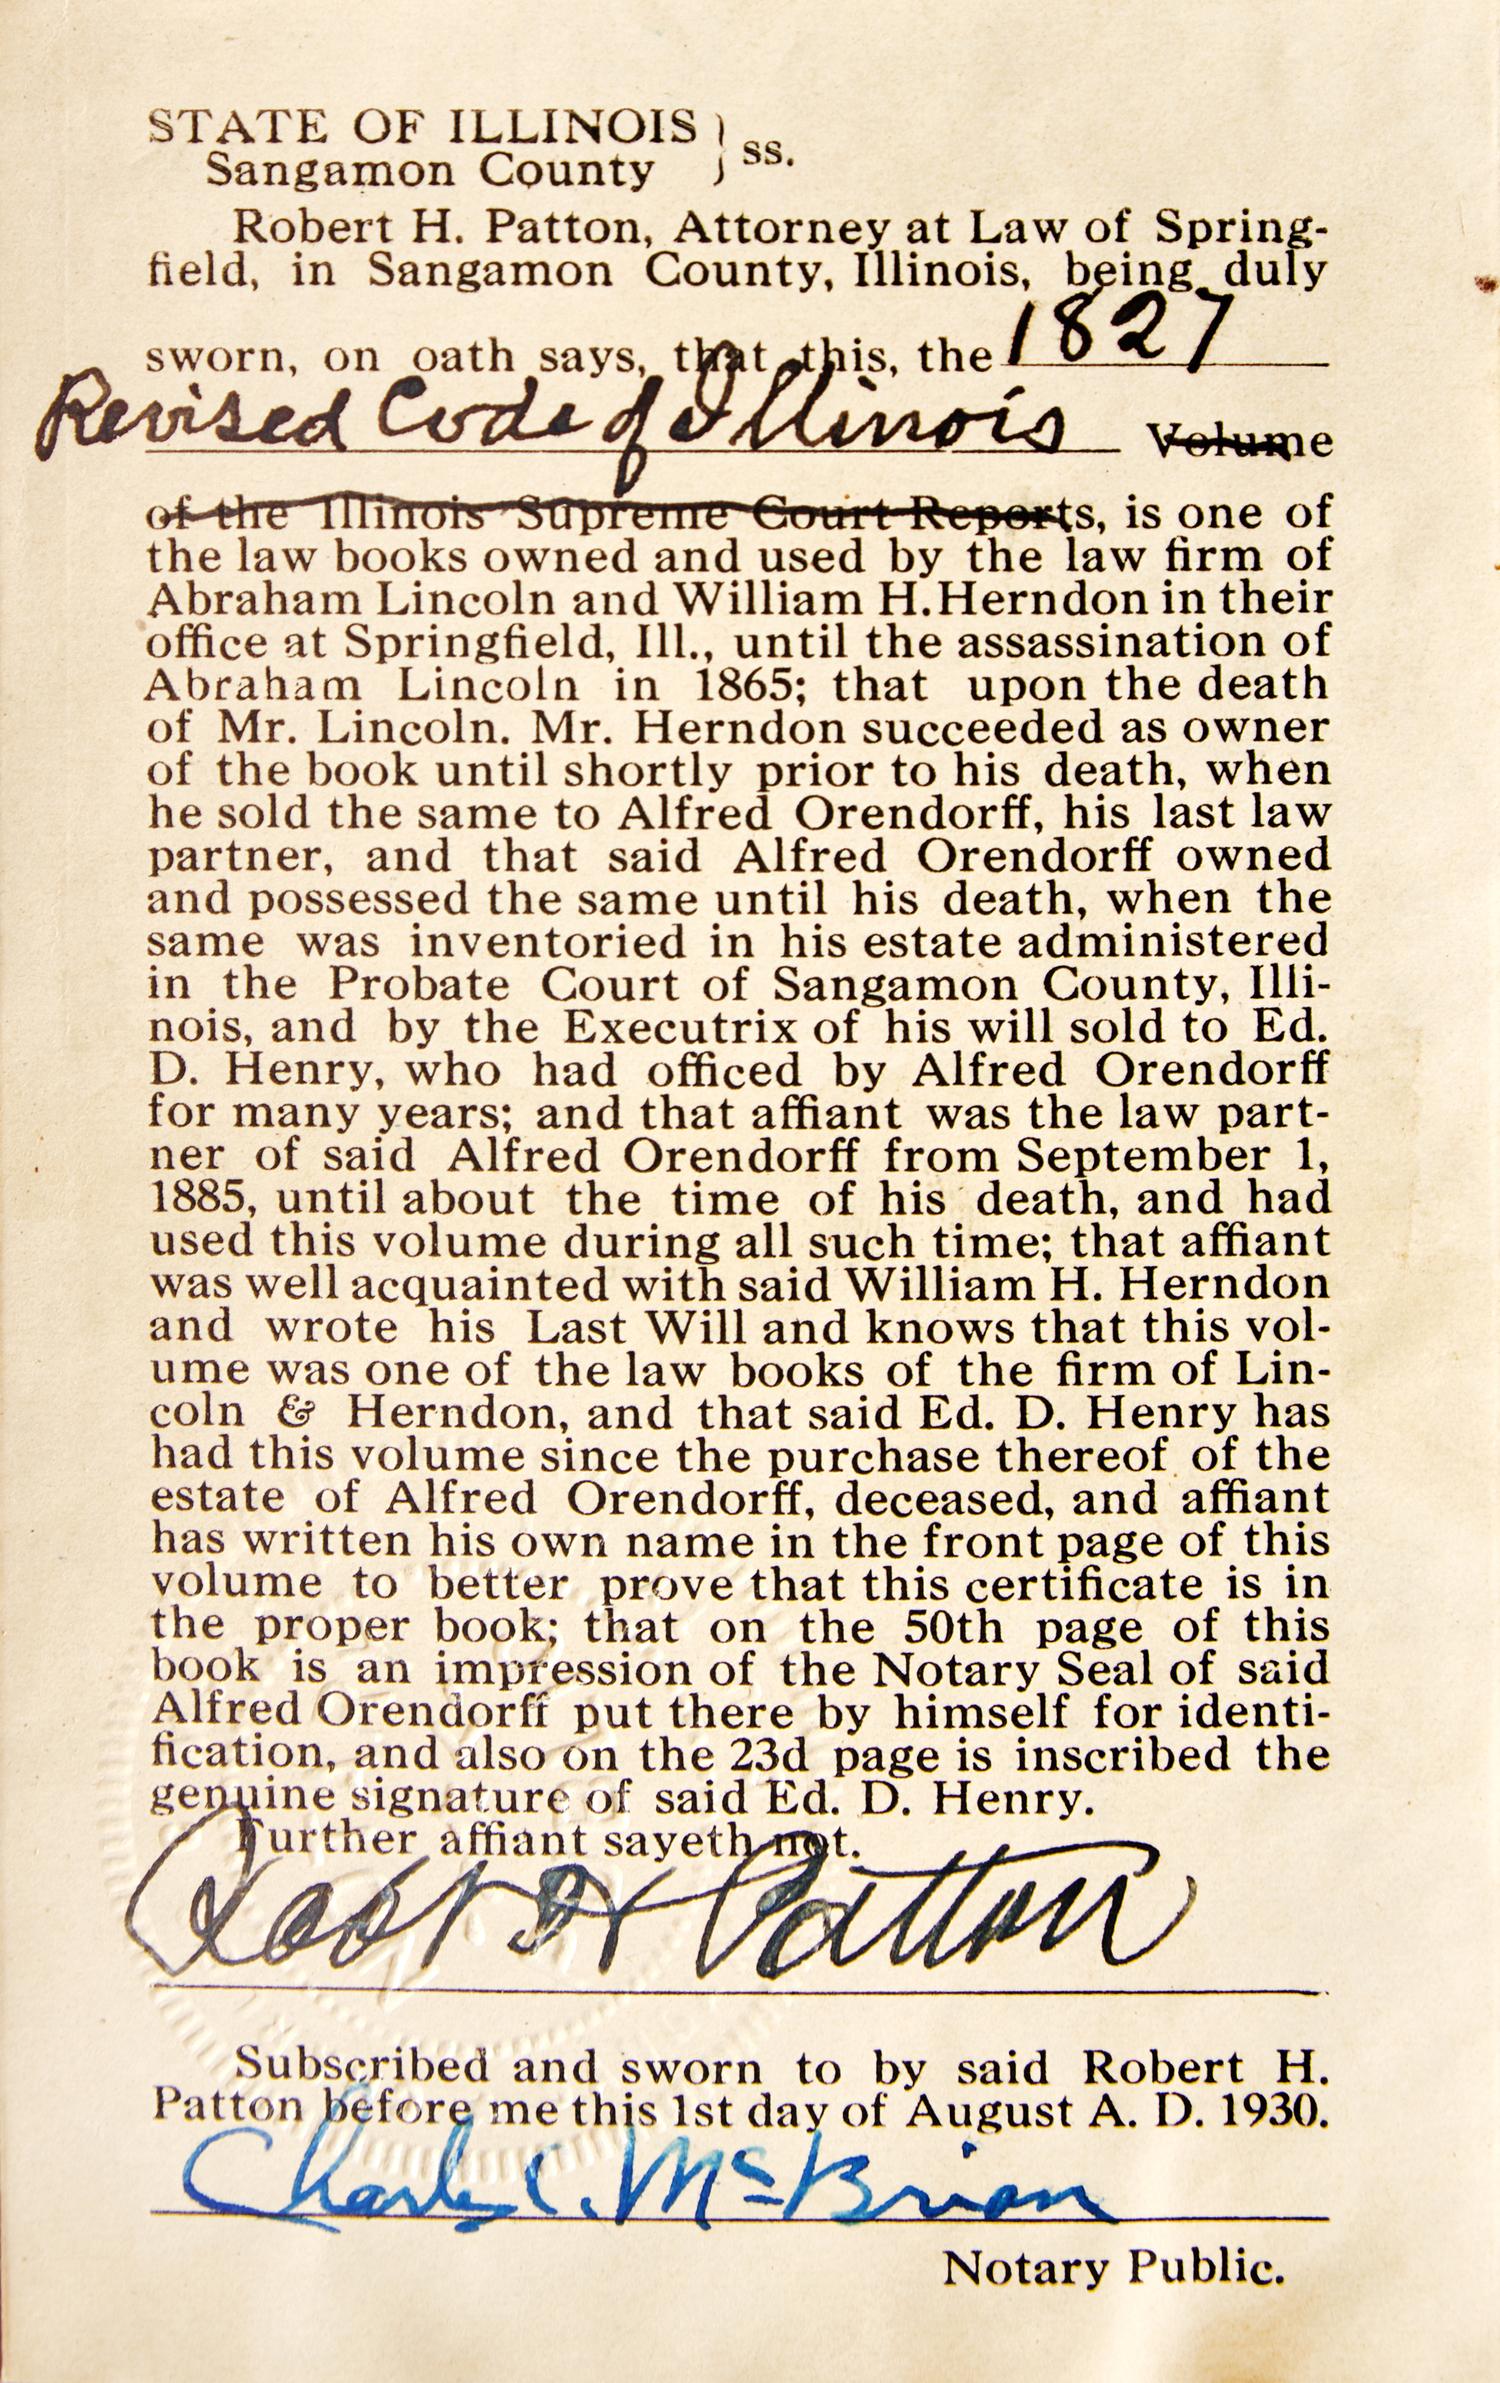 STATE OF ILLINOIS } ss.
Sangamon County
Robert H. Patton, Attorney at Law of Spring-
field, in Sangamon County, Illinois, being duly
sworn, on oath says, that this, the 1827
Revised Code of Illinois Volume
of the Illinois Supreme Court Reports, is one of
the law books owned and used by the law firm of
Abraham Lincoln and William H.Herndon in their
office at Springfield, Ill., until the assassination of
Abraham Lincoln in 1865; that upon the death
of Mr. Lincoln. Mr. Herndon succeeded as owner
of the book until shortly prior to his death, when
he sold the same to Alfred Orendorff, his last law
partner, and that said Alfred Orendorff owned
and possessed the same until his death, when the
same was inventoried in his estate administered
in the Probate Court of Sangamon County, Illi-
nois, and by the Executrix of his will sold to Ed.
D. Henry, who had officed by Alfred Orendorff
for many years; and that affiant was the law part-
ner of said Alfred Orendorff from September 1,
1885, until about the time of his death, and had
used this volume during all such time; that affiant
was well acquainted with said William H. Herndon
and wrote his Last Will and knows that this vol-
ume was one of the law books of the firm of Lin-
coln & Herndon, and that said Ed. D. Henry has
had this volume since the purchase thereof of the
estate of Alfred Orendorff, deceased, and affiant
has written his own name in the front page of this
volume to better prove that this certificate is in
the proper book; that on the 50th page of this
book is an impression of the Notary Seal of said
Alfred Orendorff put there by himself for identi-
fication, and also on the 23d page is inscribed the
genuine signature of said Ed. D. Henry.
Further affiant sayeth not.
Robt H Patton
Subscribed and sworn to by said Robert H.
Patton before me this 1st day of August A. D. 1930.
Charles C. McBrian
Notary Public.